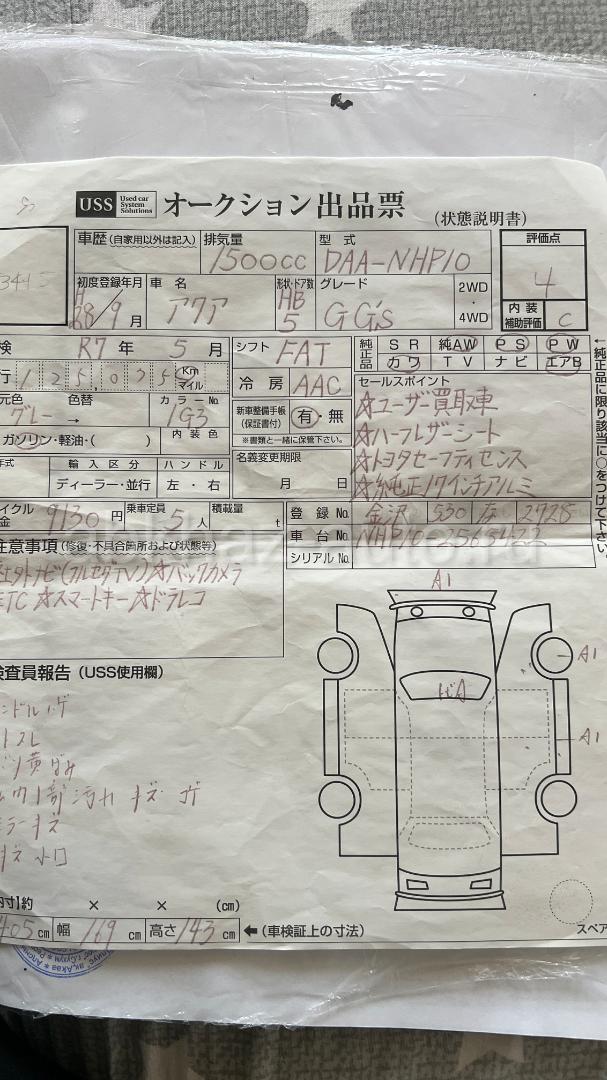 USS Used car System Solutions オークション出品票 (状態説明書)
車歴 (自家用以外は記入) 排気量 1500cc 型式 DAA-NHP10 評価点 4
初度登録年月 H28/9月 車名 アクア 形状・ドア数 HB 5 グレード G G's 2WD・4WD
内装補助評価 C
検 R7年 5月 シフト FAT 純正品 SR 純AW PS PW
カワ TV ナビ エアB
行 125,035 Km マイル 冷房 AAC セールスポイント
元色 グレー → 色替 カラーNo 1G3 新車整備手帳 (保証書付) 有・無 ※書類と一緒に保管下さい。
☆ユーザー買取車
ガソリン・軽油・( ) 内装色 ☆ハーフレザーシート
年式 輸入区分 ハンドル 名義変更期限 ☆トヨタセーフティセンス
ディーラー・並行 左・右 月 日 ☆純正17インチアルミ
←純正品に限り該当に○をつけて下さい。
サイクル 金 9130円 乗車定員 5人 積載量 t 登録No. 金沢 530
車台No. NHP10-2565422
シリアルNo.
注意事項 (修復・不具合箇所および状態等)
ナビ(フルセグTV)☆バックカメラ
ETC ☆スマートキー☆ドラレコ
検査員報告 (USS使用欄)
ンドルハゲ
スレ
黄ばみ
内部汚れ キズ
ラーキズ
キズ 小凹
A1
A1
A1
内寸)約 × × (cm)
405cm 幅 169cm 高さ 143cm ←(車検証上の寸法)
スペア